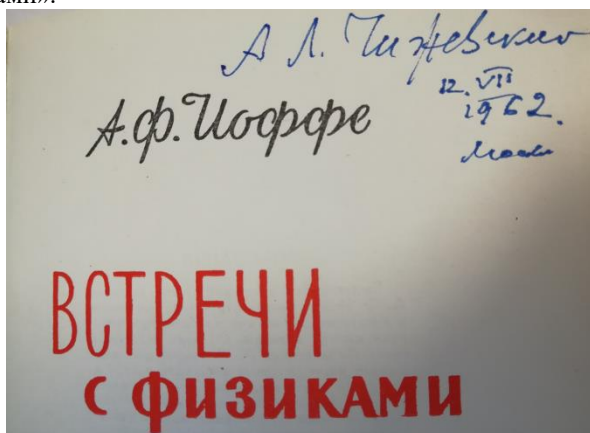 ами».
А Л. Чижевский
12. VII
1962.
А.Ф. Иоффе
ВСТРЕЧИ
с физиками